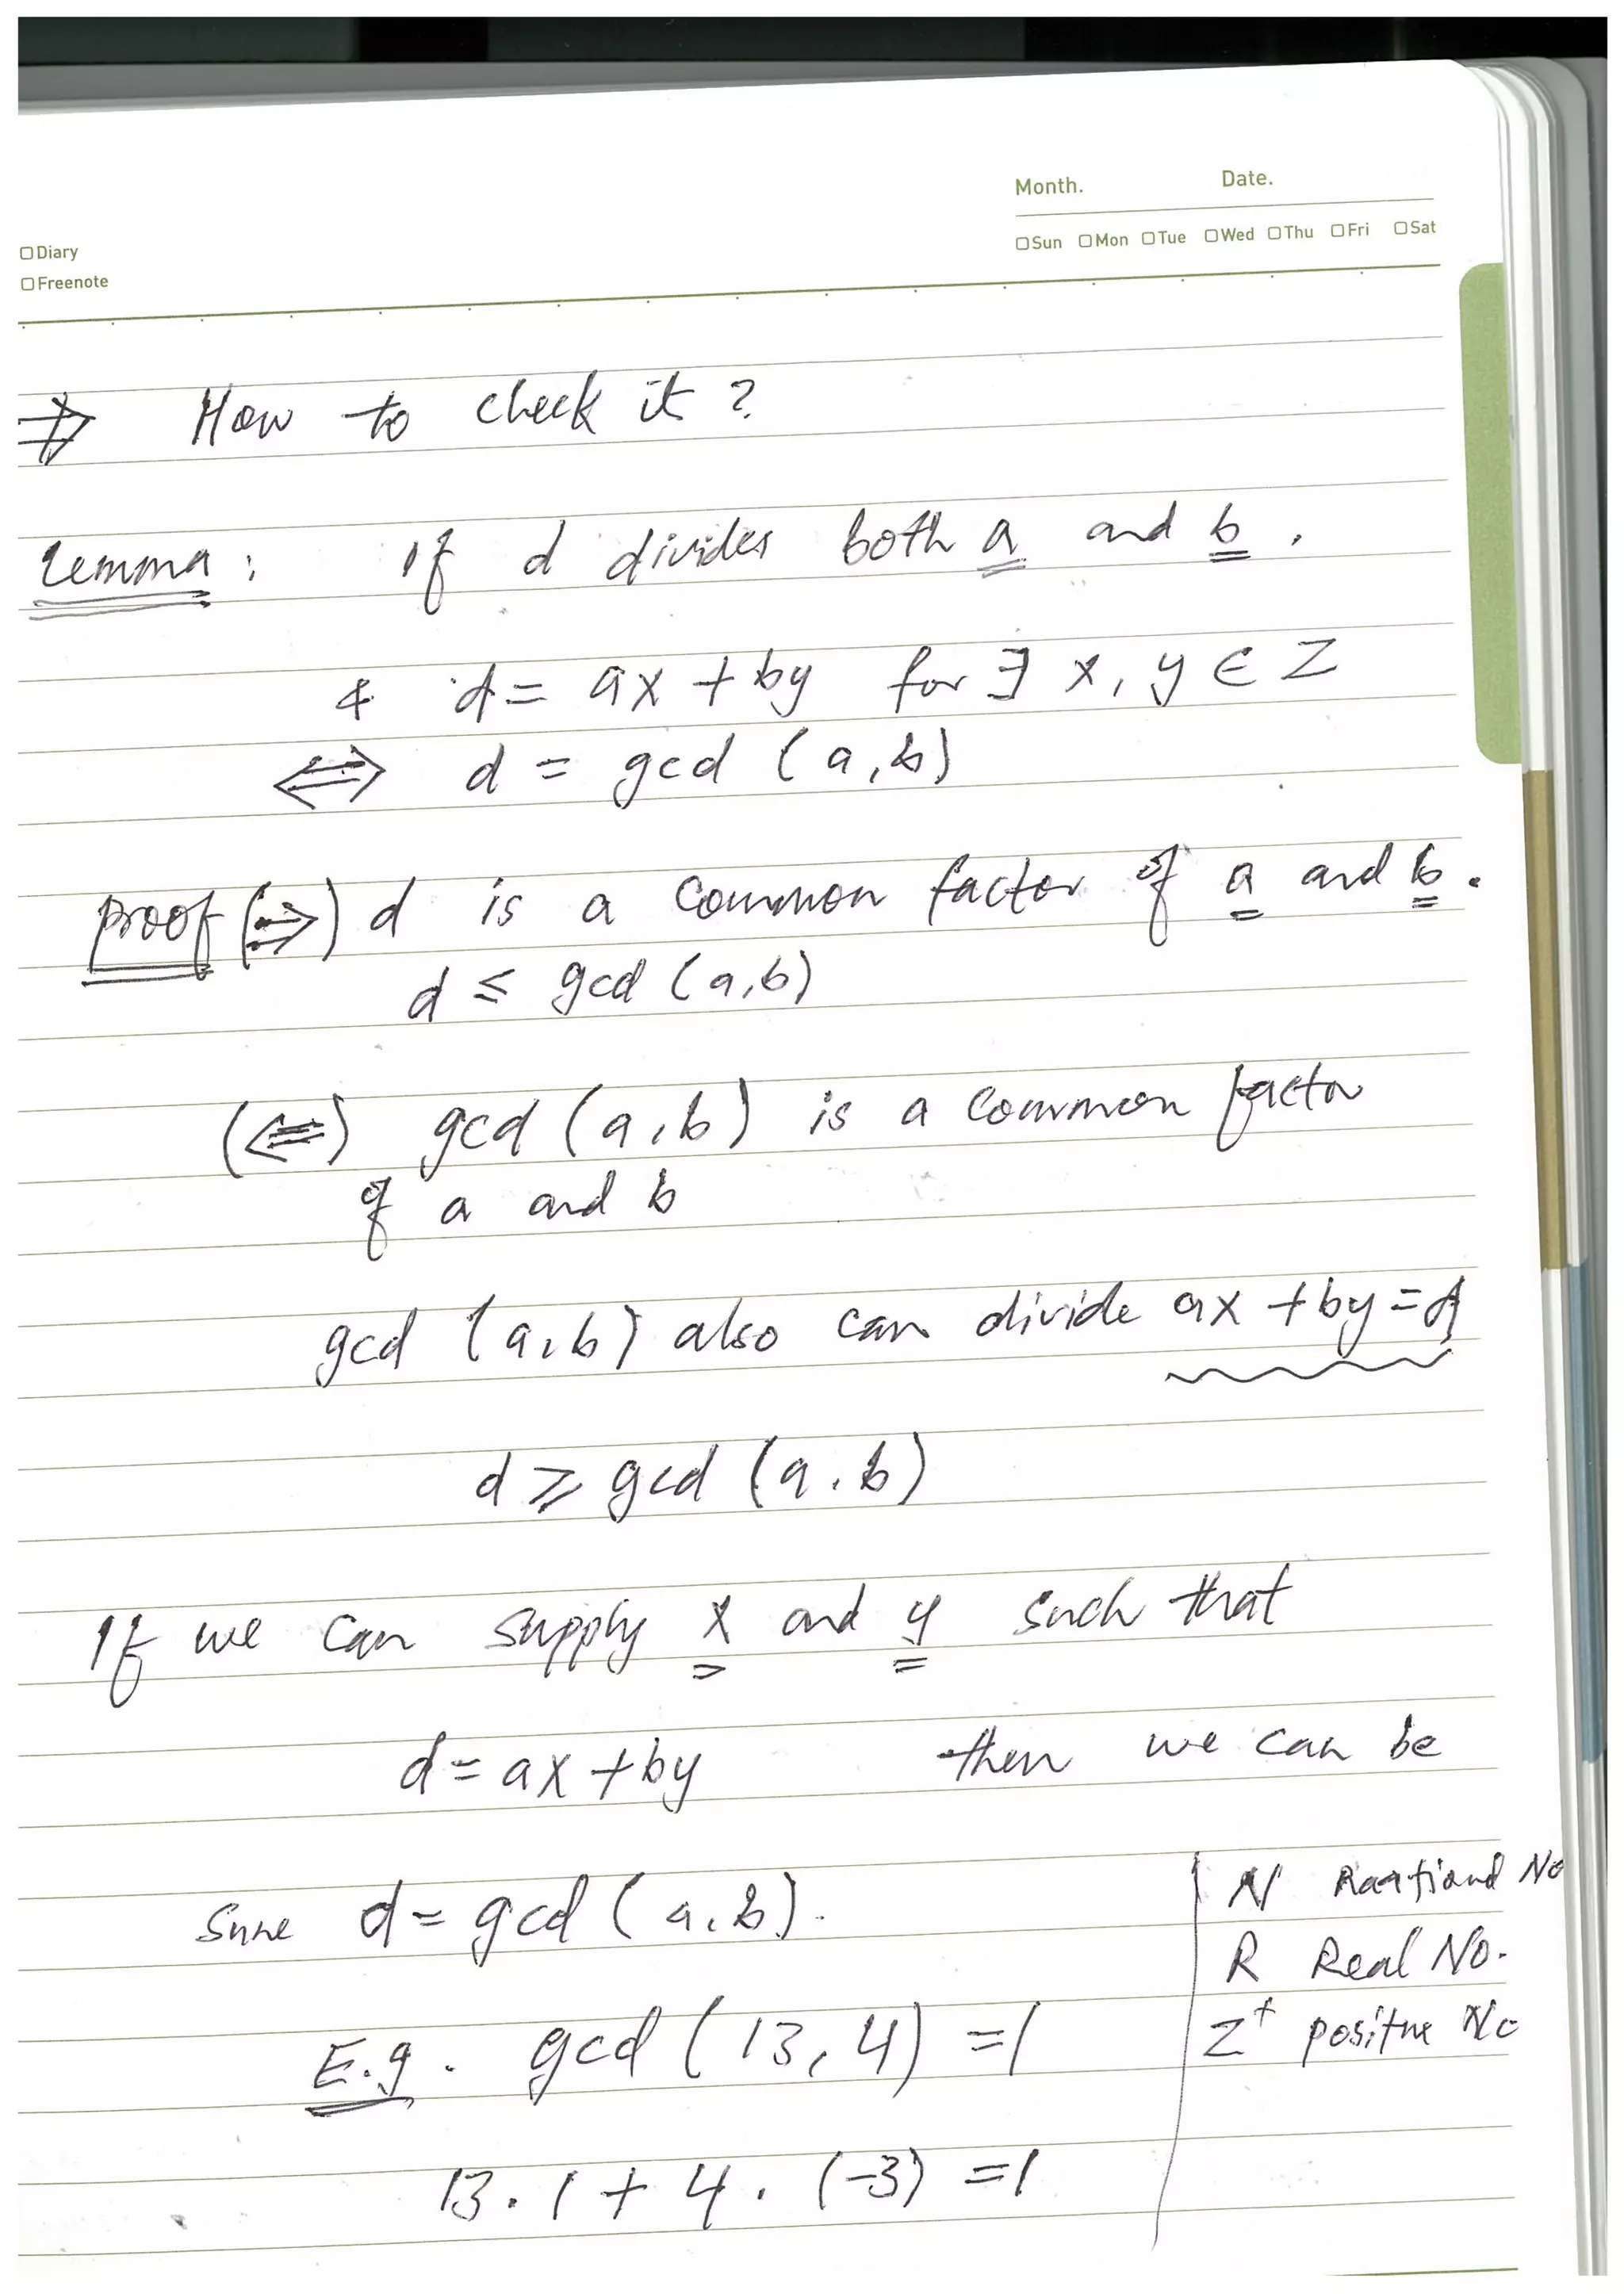 Month. Date.
□Sun □Mon □Tue □Wed □Thu □Fri □Sat
□Diary
□Freenote
⇒ How to check it?
Lemma: If d divides both a and b.
& d = ax + by for ∃ x, y ∈ Z
⟺ d = gcd (a,b)
proof (⇒) d is a common factor of a and b.
d ≤ gcd (a,b)
(⇐) gcd (a,b) is a common factor
of a and b
gcd (a,b) also can divide ax + by = d
d ≥ gcd (a.b)
If we can supply x and y such that
d = ax + by then we can be
sure d = gcd (a.b).
N Raational No
R Real No.
Z⁺ positive No
E.g. gcd (13, 4) = 1
13 . 1 + 4 . (-3) = 1